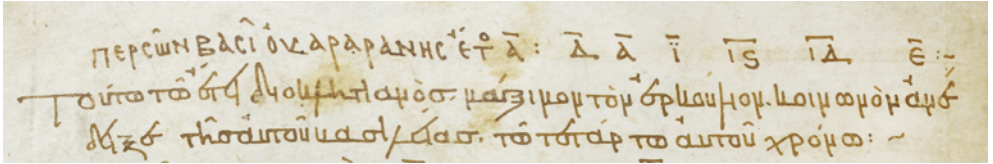 περσῶν βασι οὐαραράνης ἔτο α̅: δ̅ α̅ ϊ̅ ι̅ϛ̅ ι̅δ̅ ε̅:~
Τούτω τῶ ἔτει διοκλητιανὸσ· μάξιμον τὸν ἑρκούλιον· κοινωνὸν ἀνέ
δειξε τῆσ αὐτοῦ βασιλείασ· τῶ τετάρτω αὐτοῦ χρόνω:~